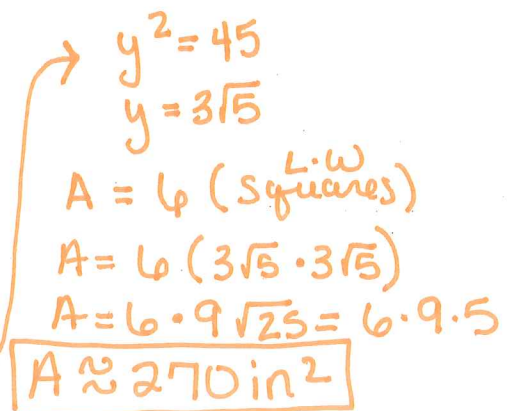 y² = 45
y = 3√5
L·W
A = 6 (squares)
A = 6 (3√5 · 3√5)
A = 6 · 9 √25 = 6 · 9 · 5
A ≈ 270 in²